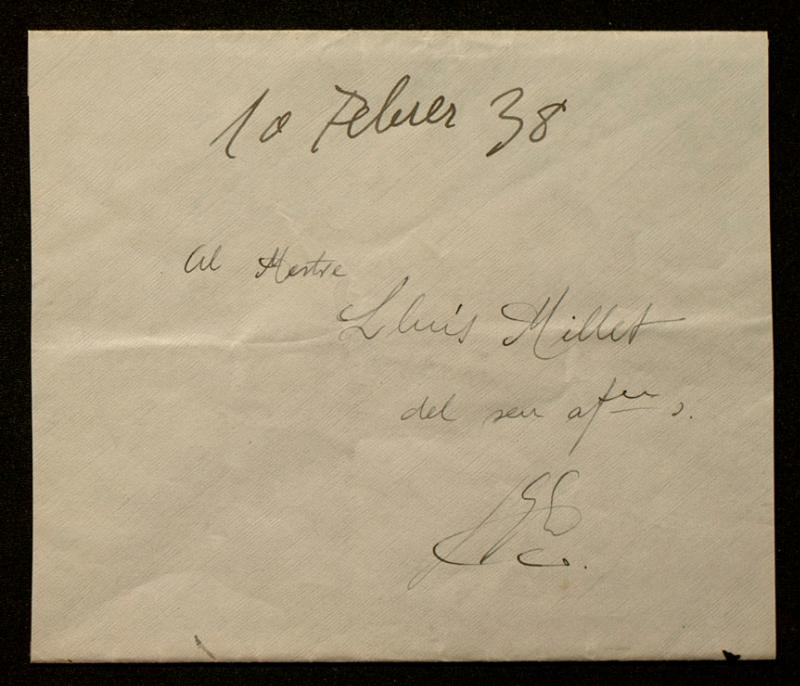 10 Febrer 38
Al Mestre
Lluís Millet
del seu afm s.